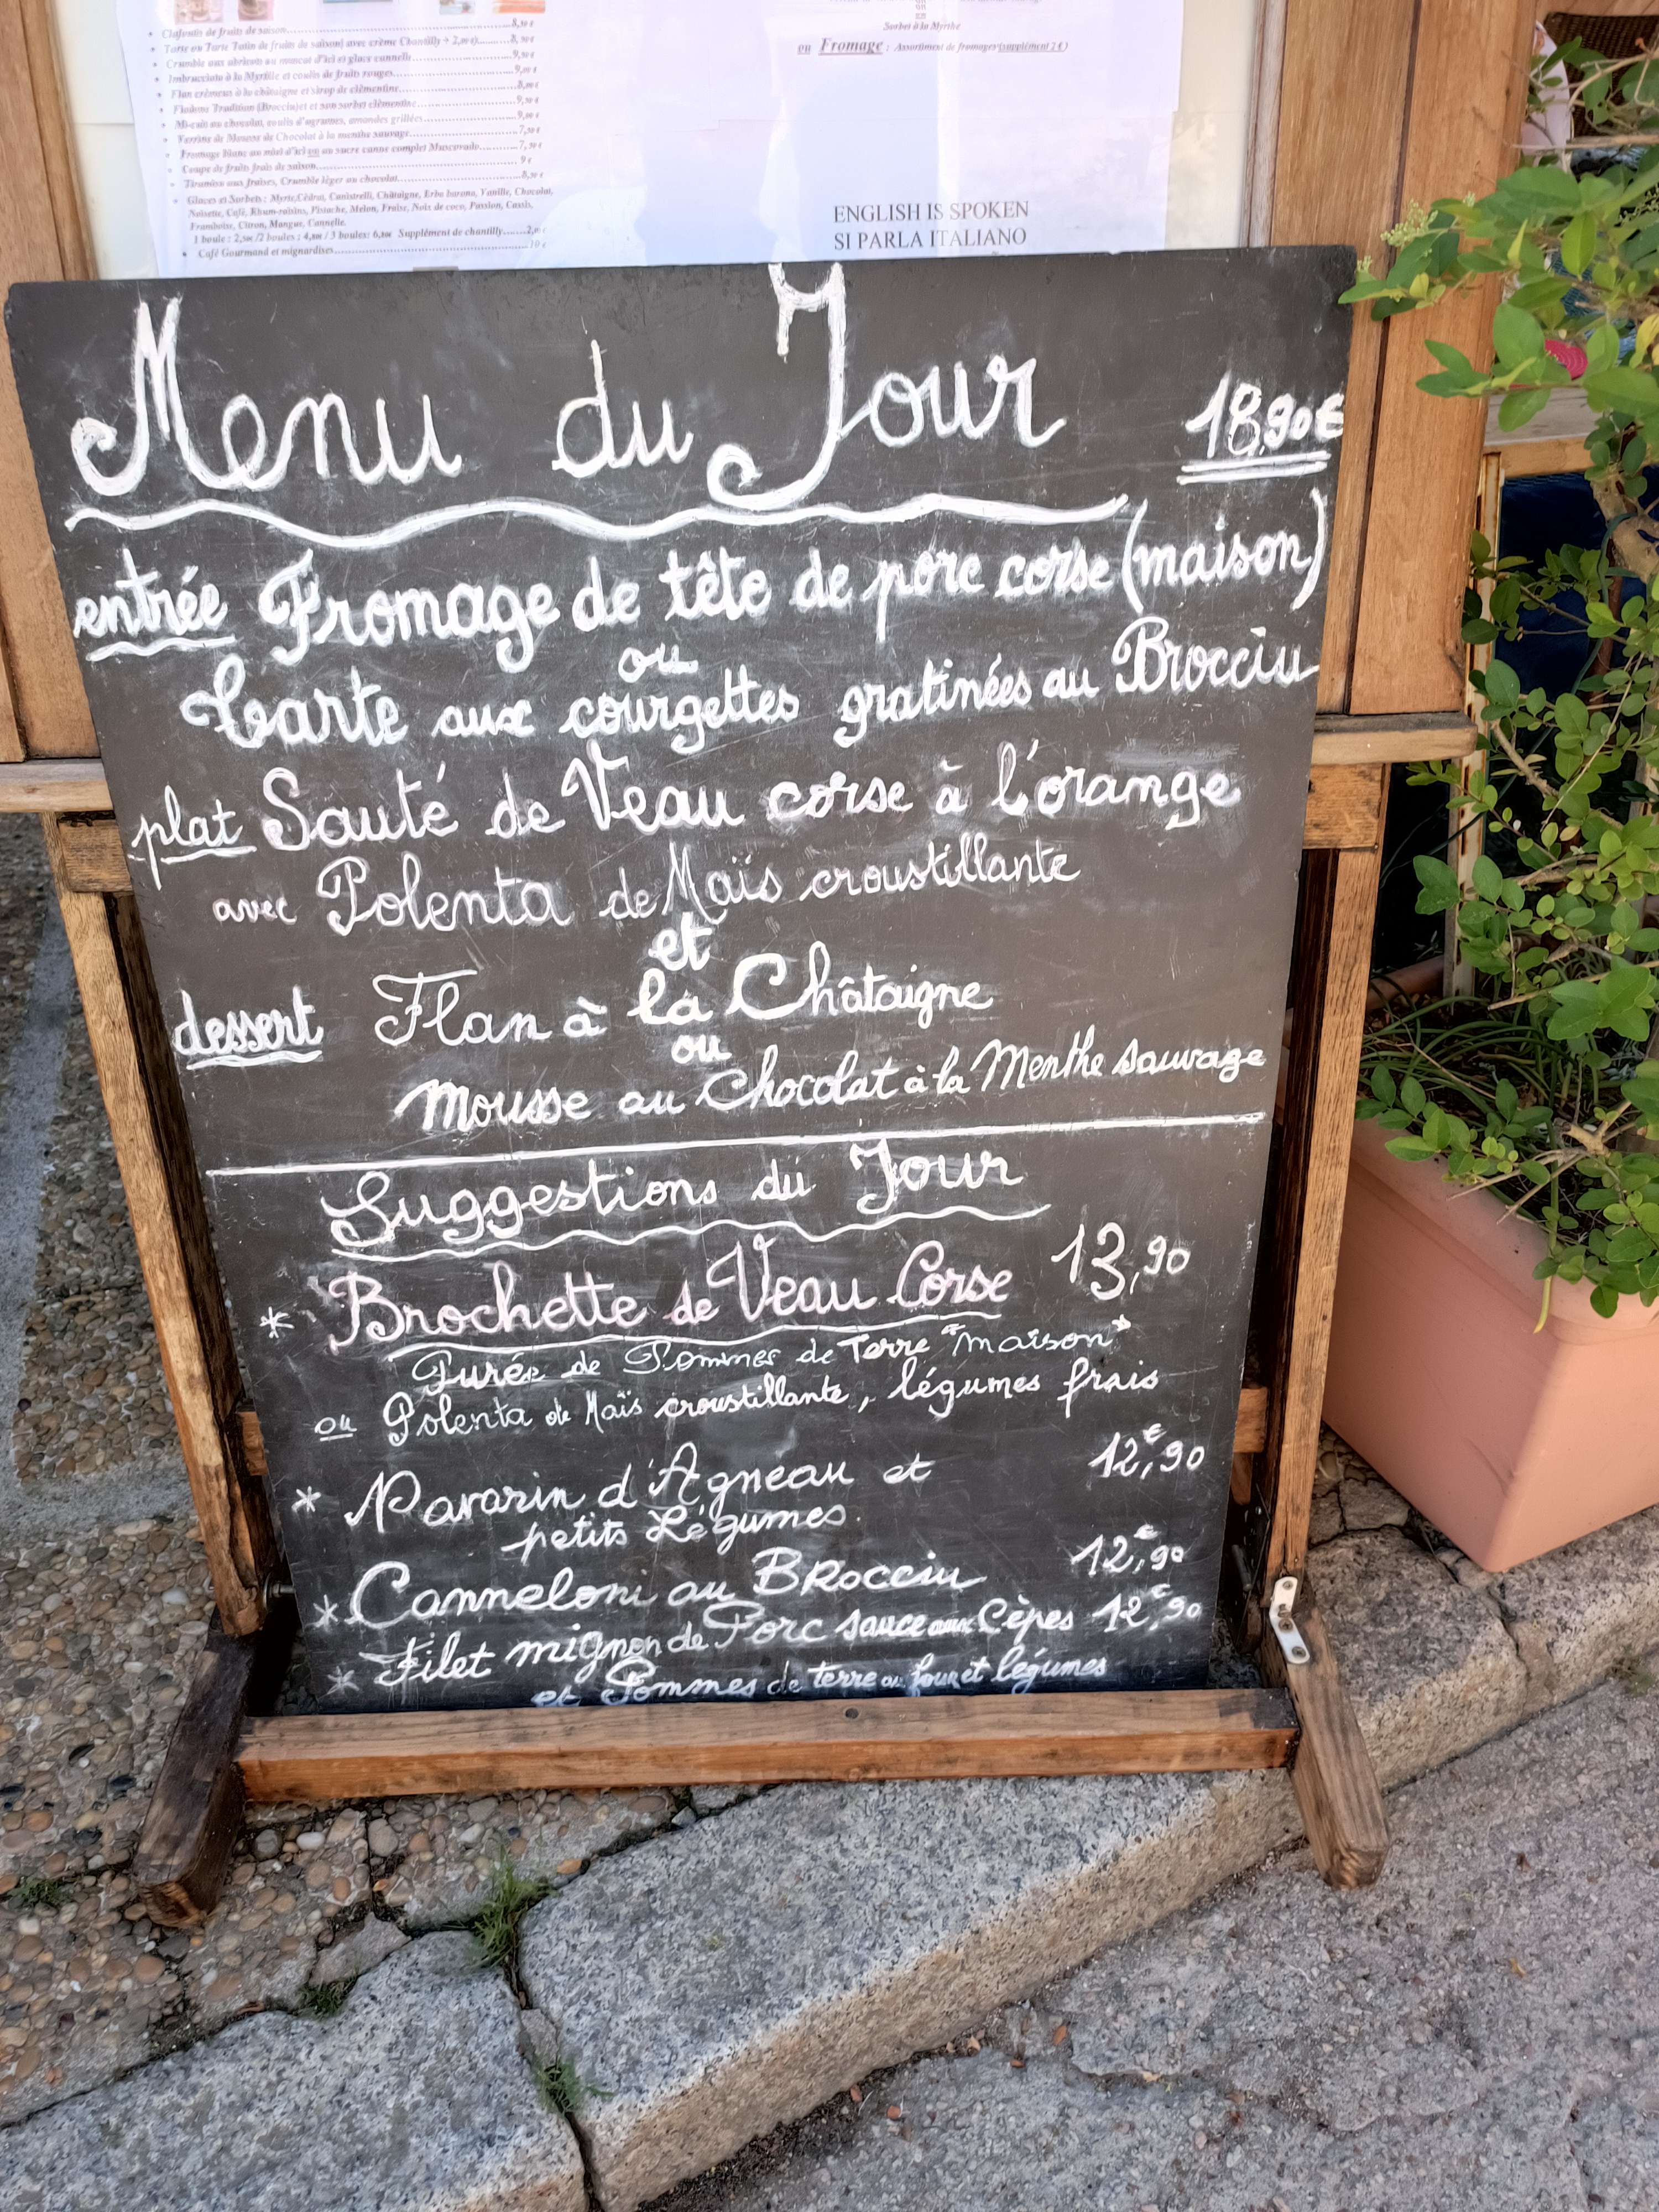 Clafoutis de fruits de saison..................8,50 €
Tarte ou Tarte Tatin de fruits de saison( avec crème Chantilly + 2,00 €)..........8,50 €
Crumble aux abricots au muscat d'ici et glace cannelle..................9,50 €
Imbrucciata à la Myrtille et coulis de fruits rouges..................9,00 €
Flan crémeux à la châtaigne et sirop de clémentine..................8,00 €
Fiadone Tradition (Brocciu)et son sorbet clémentine..................9,50 €
Mi-cuit au chocolat, coulis d'agrumes, amandes grillées..................9,00 €
Verrine de Mousse de Chocolat à la menthe sauvage..................7,50 €
Fromage blanc au miel d'ici ou au sucre canne complet Muscovado..........7,50 €
Coupe de fruits frais de saison..................9 €
Tiramisu aux fraises, Crumble léger au chocolat..................8,50 €
Glaces et Sorbets : Myrte,Cédrat, Canistrelli, Châtaigne, Erba barona, Vanille, Chocolat,
Noisette, Café, Rhum-raisins, Pistache, Melon, Fraise, Noix de coco, Passion, Cassis,
Framboise, Citron, Mangue, Cannelle.
1 boule : 2,50€ /2 boules : 4,80€ / 3 boules: 6,80€ Supplément de chantilly.......2,00 €
Café Gourmand et mignardises..................10 €
ou
Sorbet à la Myrthe
ou Fromage : Assortiment de fromages(supplément 2 €)
ENGLISH IS SPOKEN
SI PARLA ITALIANO
Menu du Jour 18,90€
entrée Fromage de tête de porc corse (maison)
ou
Tarte aux courgettes gratinées au Brocciu
plat Sauté de Veau corse à l'orange
avec Polenta de Maïs croustillante
et
dessert Flan à la Châtaigne
ou
Mousse au Chocolat à la Menthe sauvage
Suggestions du Jour
* Brochette de Veau Corse 13,90
Purée de Pommes de Terre "maison"
ou Polenta de Maïs croustillante, légumes frais
* Navarin d'Agneau et 12,€90
petits Légumes.
* Canneloni au BRocciu 12,€90
* Filet mignon de Porc sauce aux Cèpes 12,€90
et Pommes de terre au four et légumes